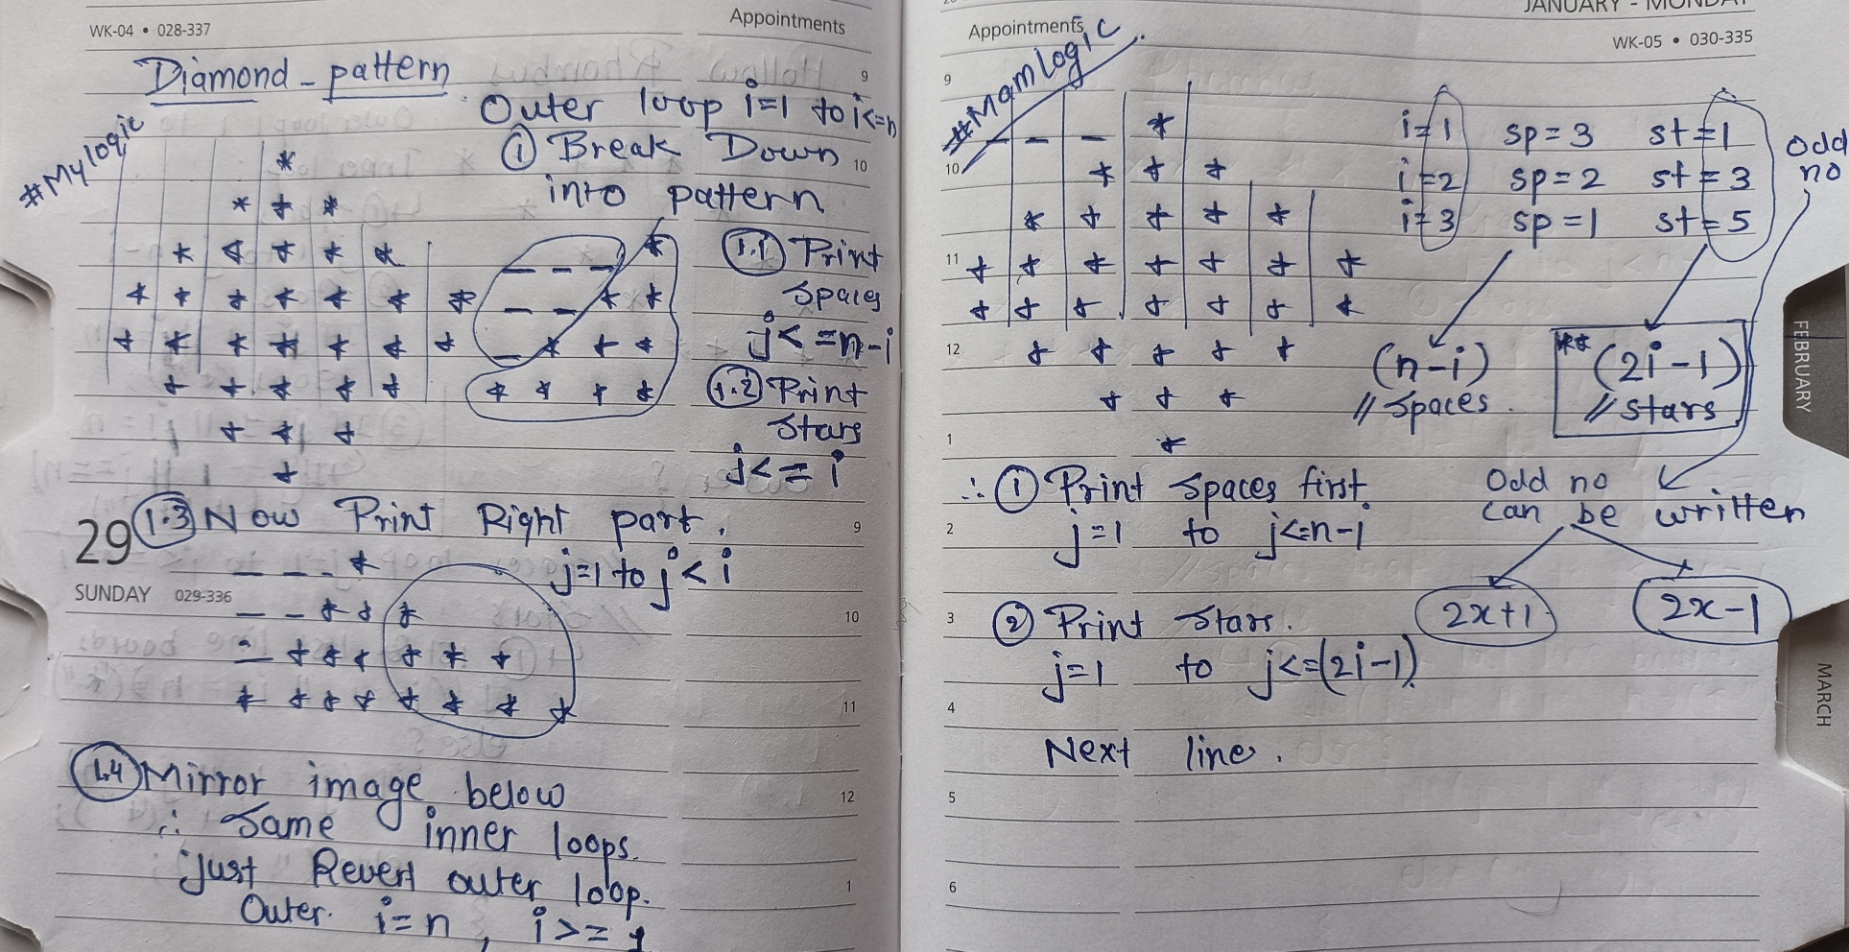 WK-04 • 028-337
Appointments
Diamond - pattern
#My logic
Outer loop i=1 to i<=n
① Break Down
into pattern
*
* * *
* * * * *
* * * * * * *
* * * * * * *
* * * * *
* * *
*
_ _ _ *
_ _ * *
_ * * *
* * * *
1.1 Print
Spaces
j<=n-i
1.2 Print
Stars
j<=i
29
SUNDAY 029-336
1.3 Now Print Right part.
j=1 to j<i
_ _ _ *
_ _ * * *
_ * * * * * *
* * * * * * * *
1.4 Mirror image below
∴ Same inner loops.
Just Revert outer loop.
Outer. i=n, i>=1
9
10
9
10
11
12
1
Appointments
JANUARY - MONDAY
WK-05 • 030-335
#Mam logic
_ _ *
* * *
* * * * *
* * * * * * *
* * * * * * *
* * * * *
* * *
*
i=1 sp=3 st=1
i=2 sp=2 st=3
i=3 sp=1 st=5
odd
no
(n-i)
// Spaces.
** (2i-1)
// Stars
∴ ① Print Spaces first
j=1 to j<=n-i
Odd no
can be written
2x+1
2x-1
② Print Stars.
j=1 to j<=(2i-1)
Next line.
9
10
11
12
1
2
3
4
5
6
FEBRUARY
MARCH